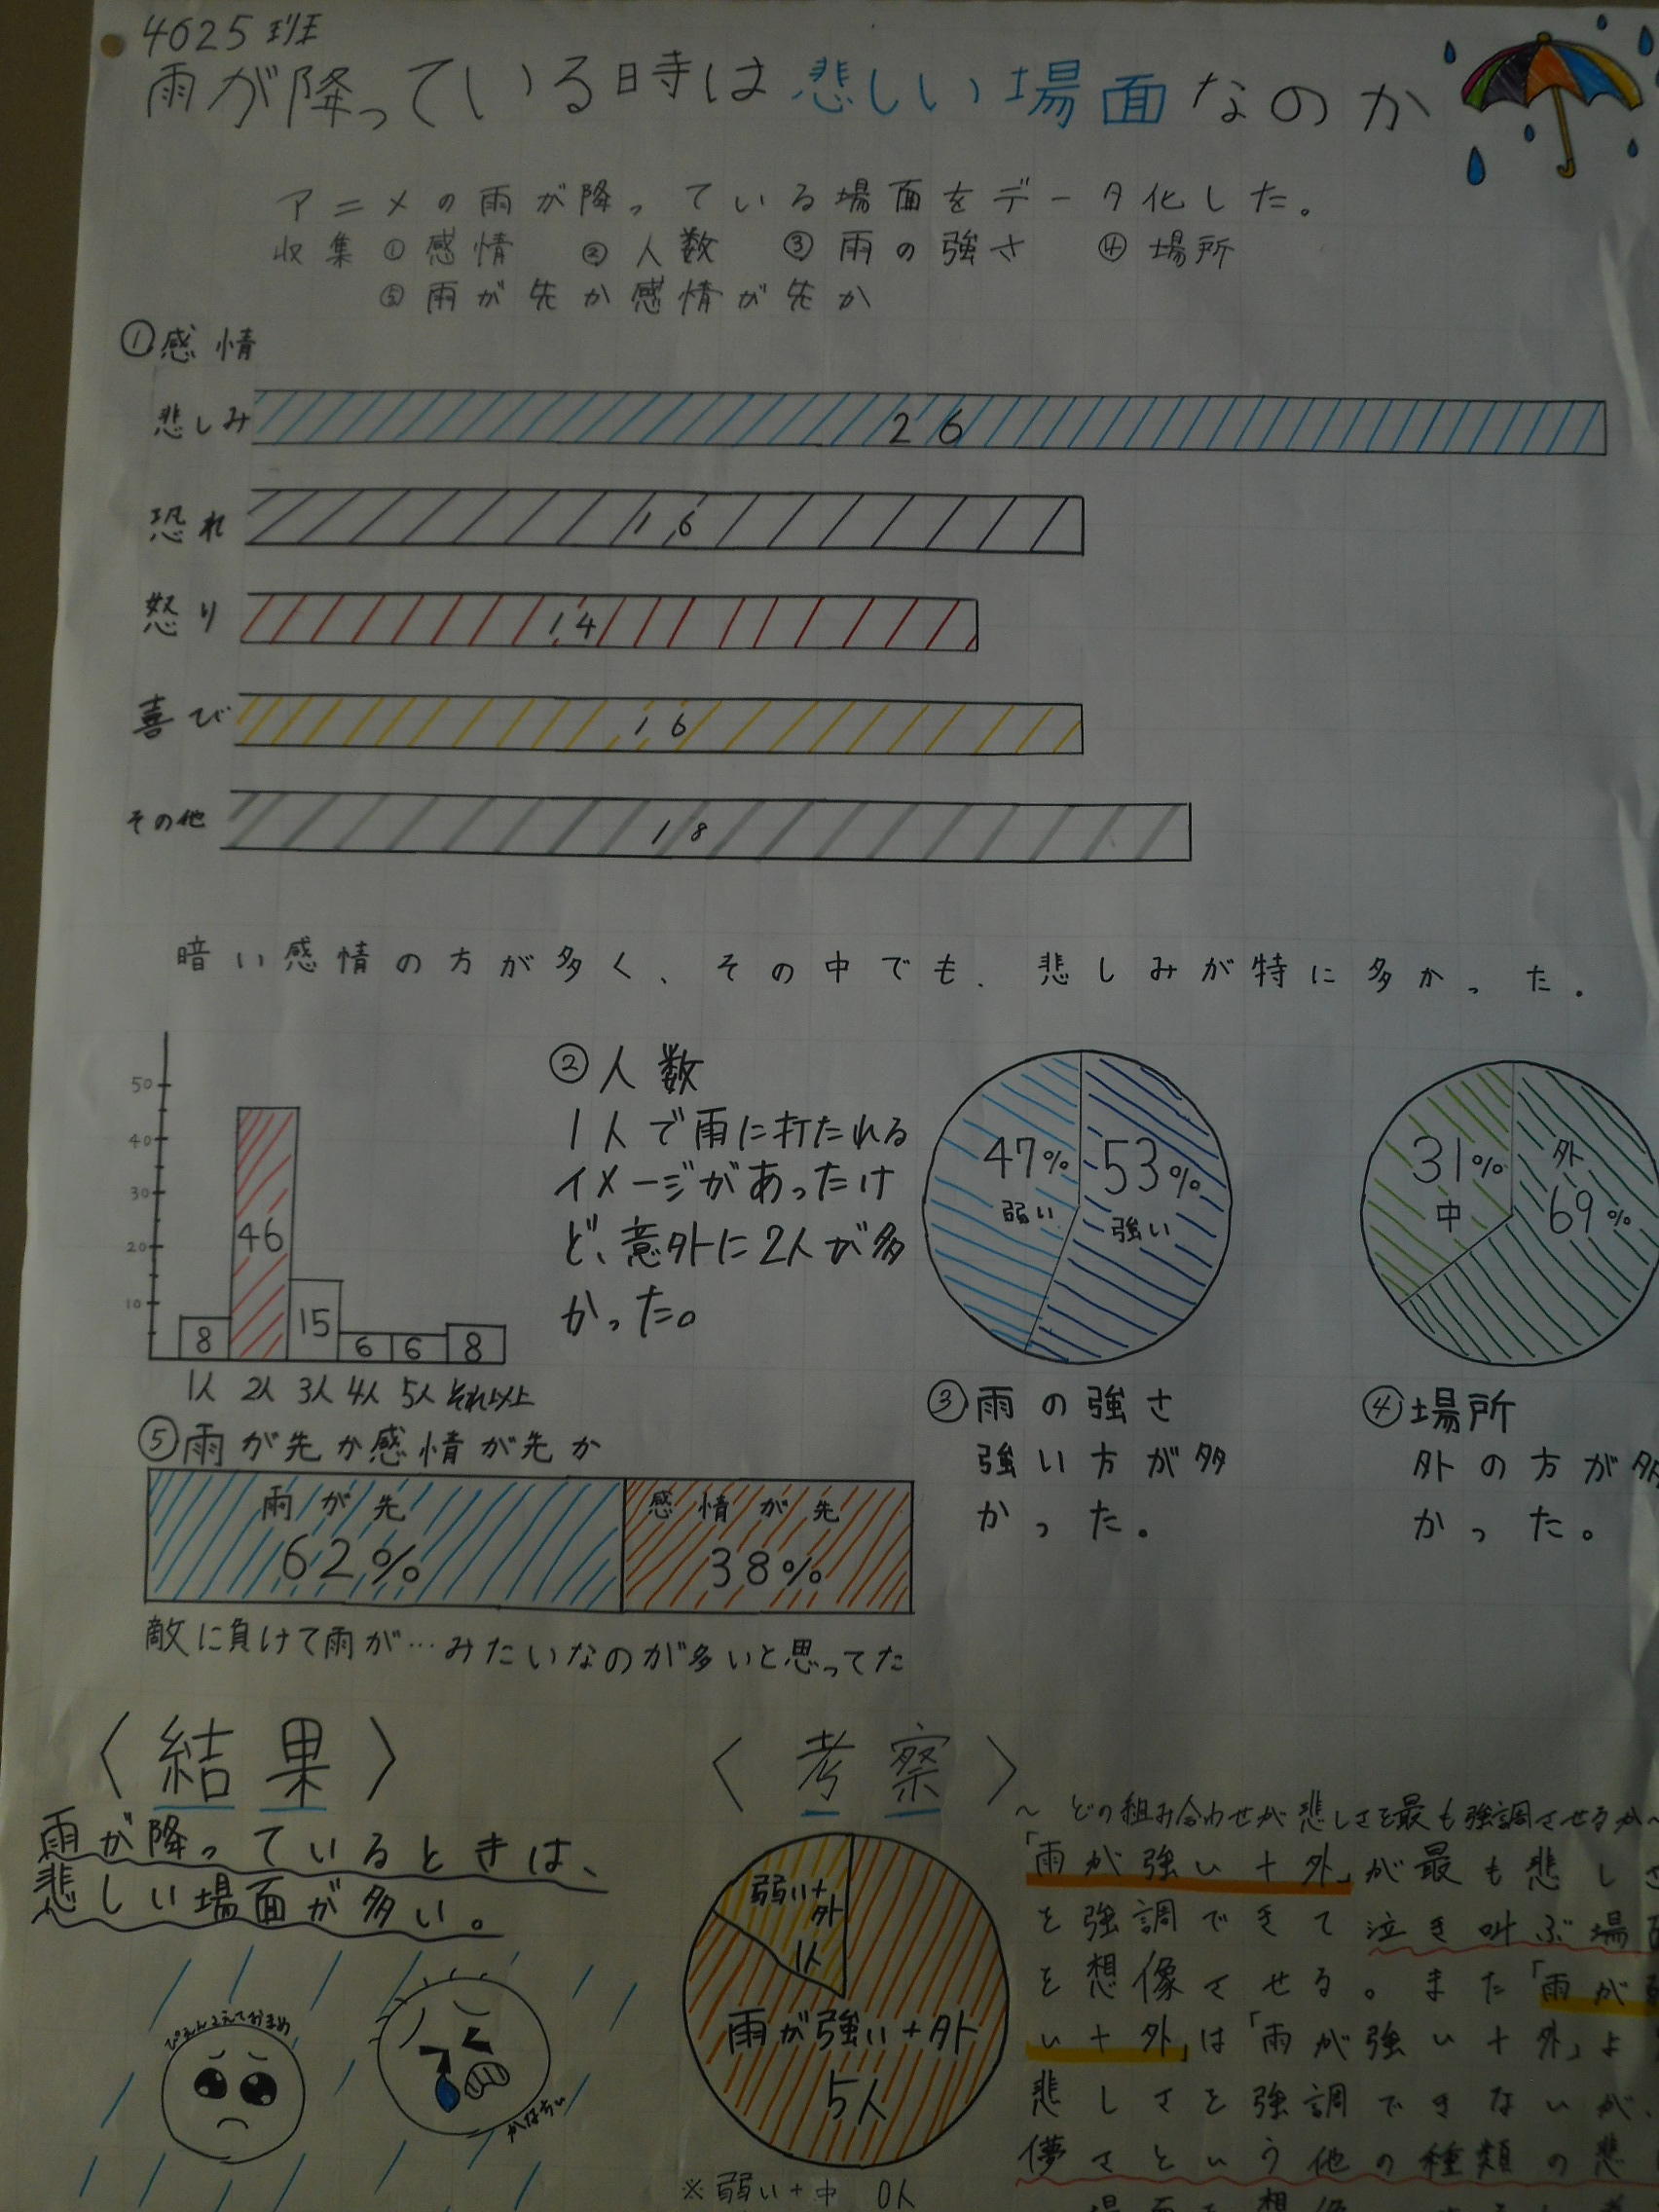 4025班
雨が降っている時は悲しい場面なのか
アニメの雨が降っている場面をデータ化した。
収集 ①感情 ②人数 ③雨の強さ ④場所
⑤雨が先か感情が先か
①感情
悲しみ 26
恐れ 16
怒り 14
喜び 16
その他 18
暗い感情の方が多く、その中でも、悲しみが特に多かった。
50
40
30
20
10
8 46 15 6 6 8
1人 2人 3人 4人 5人 それ以上
②人数
1人で雨に打たれる
イメージがあったけ
ど、意外に2人が多
かった。
47% 弱い
53% 強い
③雨の強さ
強い方が多
かった。
31% 中
外 69%
④場所
外の方が多
かった。
⑤雨が先か感情が先か
雨が先 62%
感情が先 38%
敵に負けて雨が…みたいなのが多いと思ってた
〈結果〉
雨が降っているときは、
悲しい場面が多い。
ぴえんこえておまめ
かなちい
〈考察〉
弱い+外 1人
雨が強い+外
5人
※弱い+中 0人
～どの組み合わせが悲しさを最も強調させるか～
「雨が強い+外」が最も悲しさ
を強調できて泣き叫ぶ場面
を想像させる。また「雨が弱
い+外」は「雨が強い+外」よ
悲しさを強調できないが、
儚さという他の種類の悲